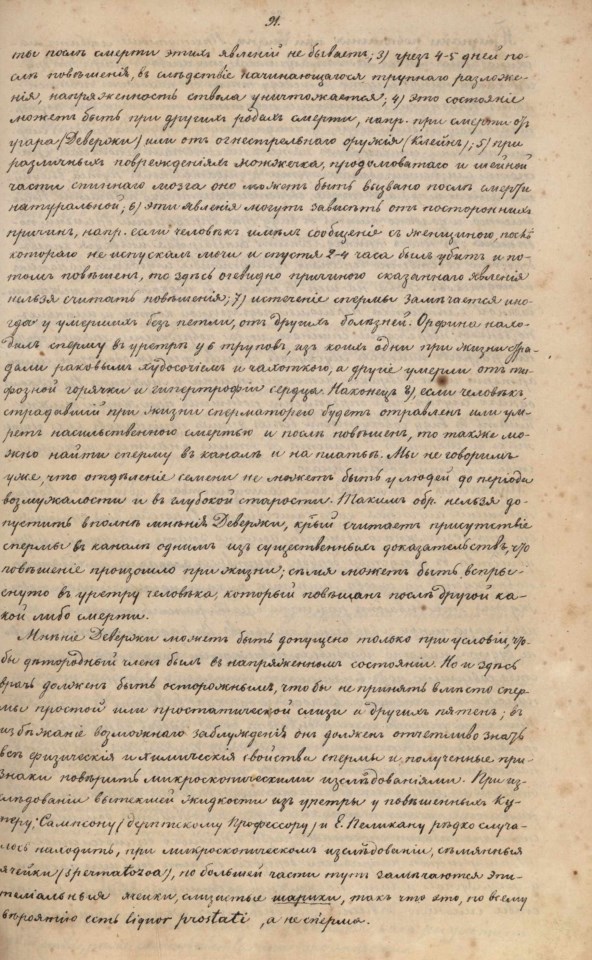 91.
ты послѣ смерти этихъ явленій не бываетъ; 3) чрезъ 4-5 дней по-
слѣ повѣшенія, въ слѣдствіе начинающагося трупнаго разложе-
нія, напряженность ствола уничтожается; 4) это состояніе
можетъ быть при другихъ родахъ смерти, напр. при смерти отъ
угара (Девержи) или отъ огнестрѣльнаго оружія (Клейнъ); 5) при
различныхъ поврежденіяхъ мозжечка, продолговатаго и шейной
части спиннаго мозга оно можетъ быть вызвано послѣ смерти
натуральной; 6) эти явленія могутъ зависѣть отъ постороннихъ
причинъ, напр. если человѣкъ имѣлъ сообщеніе съ женщиною, послѣ
котораго не испускалъ мочи и спустя 2-4 часа былъ убитъ и по-
томъ повѣшенъ, то здѣсь очевидно причиною сказаннаго явленія
нельзя считать повѣшенія; 7) истеченіе спермы замѣчается ино-
гда у умершихъ безъ петли, отъ другихъ болѣзней. Орфила нахо-
дилъ сперму въ уретрѣ у 6 труповъ, изъ коихъ одни при жизни стра-
дали раковымъ худосочіемъ и чахоткою, а другіе умерли отъ ти-
фозной горячки и гипертрофіи сердца. Наконецъ 8) если человѣкъ,
страдавшій при жизни сперматореею будетъ отравленъ или ум-
ретъ насильственною смертью и послѣ повѣшенъ, то также мо-
жно найти сперму въ каналѣ и на платьѣ. Мы не говоримъ
уже, что отдѣленіе семени не можетъ быть у людей до періода
возмужалости и въ глубокой старости. Такимъ обр. нельзя до-
пустить вполнѣ мнѣнія Девержи, крый считаетъ присутствіе
спермы въ каналѣ однимъ изъ существенныхъ доказательствъ, что
повѣшеніе произошло при жизни; сѣмя можетъ быть вспры-
снуто въ уретру человѣка, который повѣшанъ послѣ другой ка-
кой либо смерти.
Мнѣніе Девержи можетъ быть допущено только при условіи, что-
бы дѣтородный членъ былъ въ напряженномъ состояніи. Но и здѣсь
врачъ долженъ быть осторожнымъ, чтобы не принять вмѣсто спер-
мы простой или простатической слизи и другихъ пятенъ; въ
избѣжаніе возможнаго заблужденія онъ долженъ отчетливо знать
всѣ физическія и химическія свойства спермы и полученные при-
знаки повѣрить микроскопическими изслѣдованіями. При из-
слѣдованіи вытекшей жидкости изъ уретры у повѣшенныхъ Ку-
перу, Сампсону (дерптскому Профессору) и Е. Пеликану рѣдко случа-
лось находить, при микроскопическомъ изслѣдованіи, сѣмянныя
ячейки (spermatozoa), по большей части тутъ замѣчаются эпи-
теліальныя ячейки, слизистые шарики, такъ что это, по всему
вѣроятію есть liquor prostati, а не сперма.